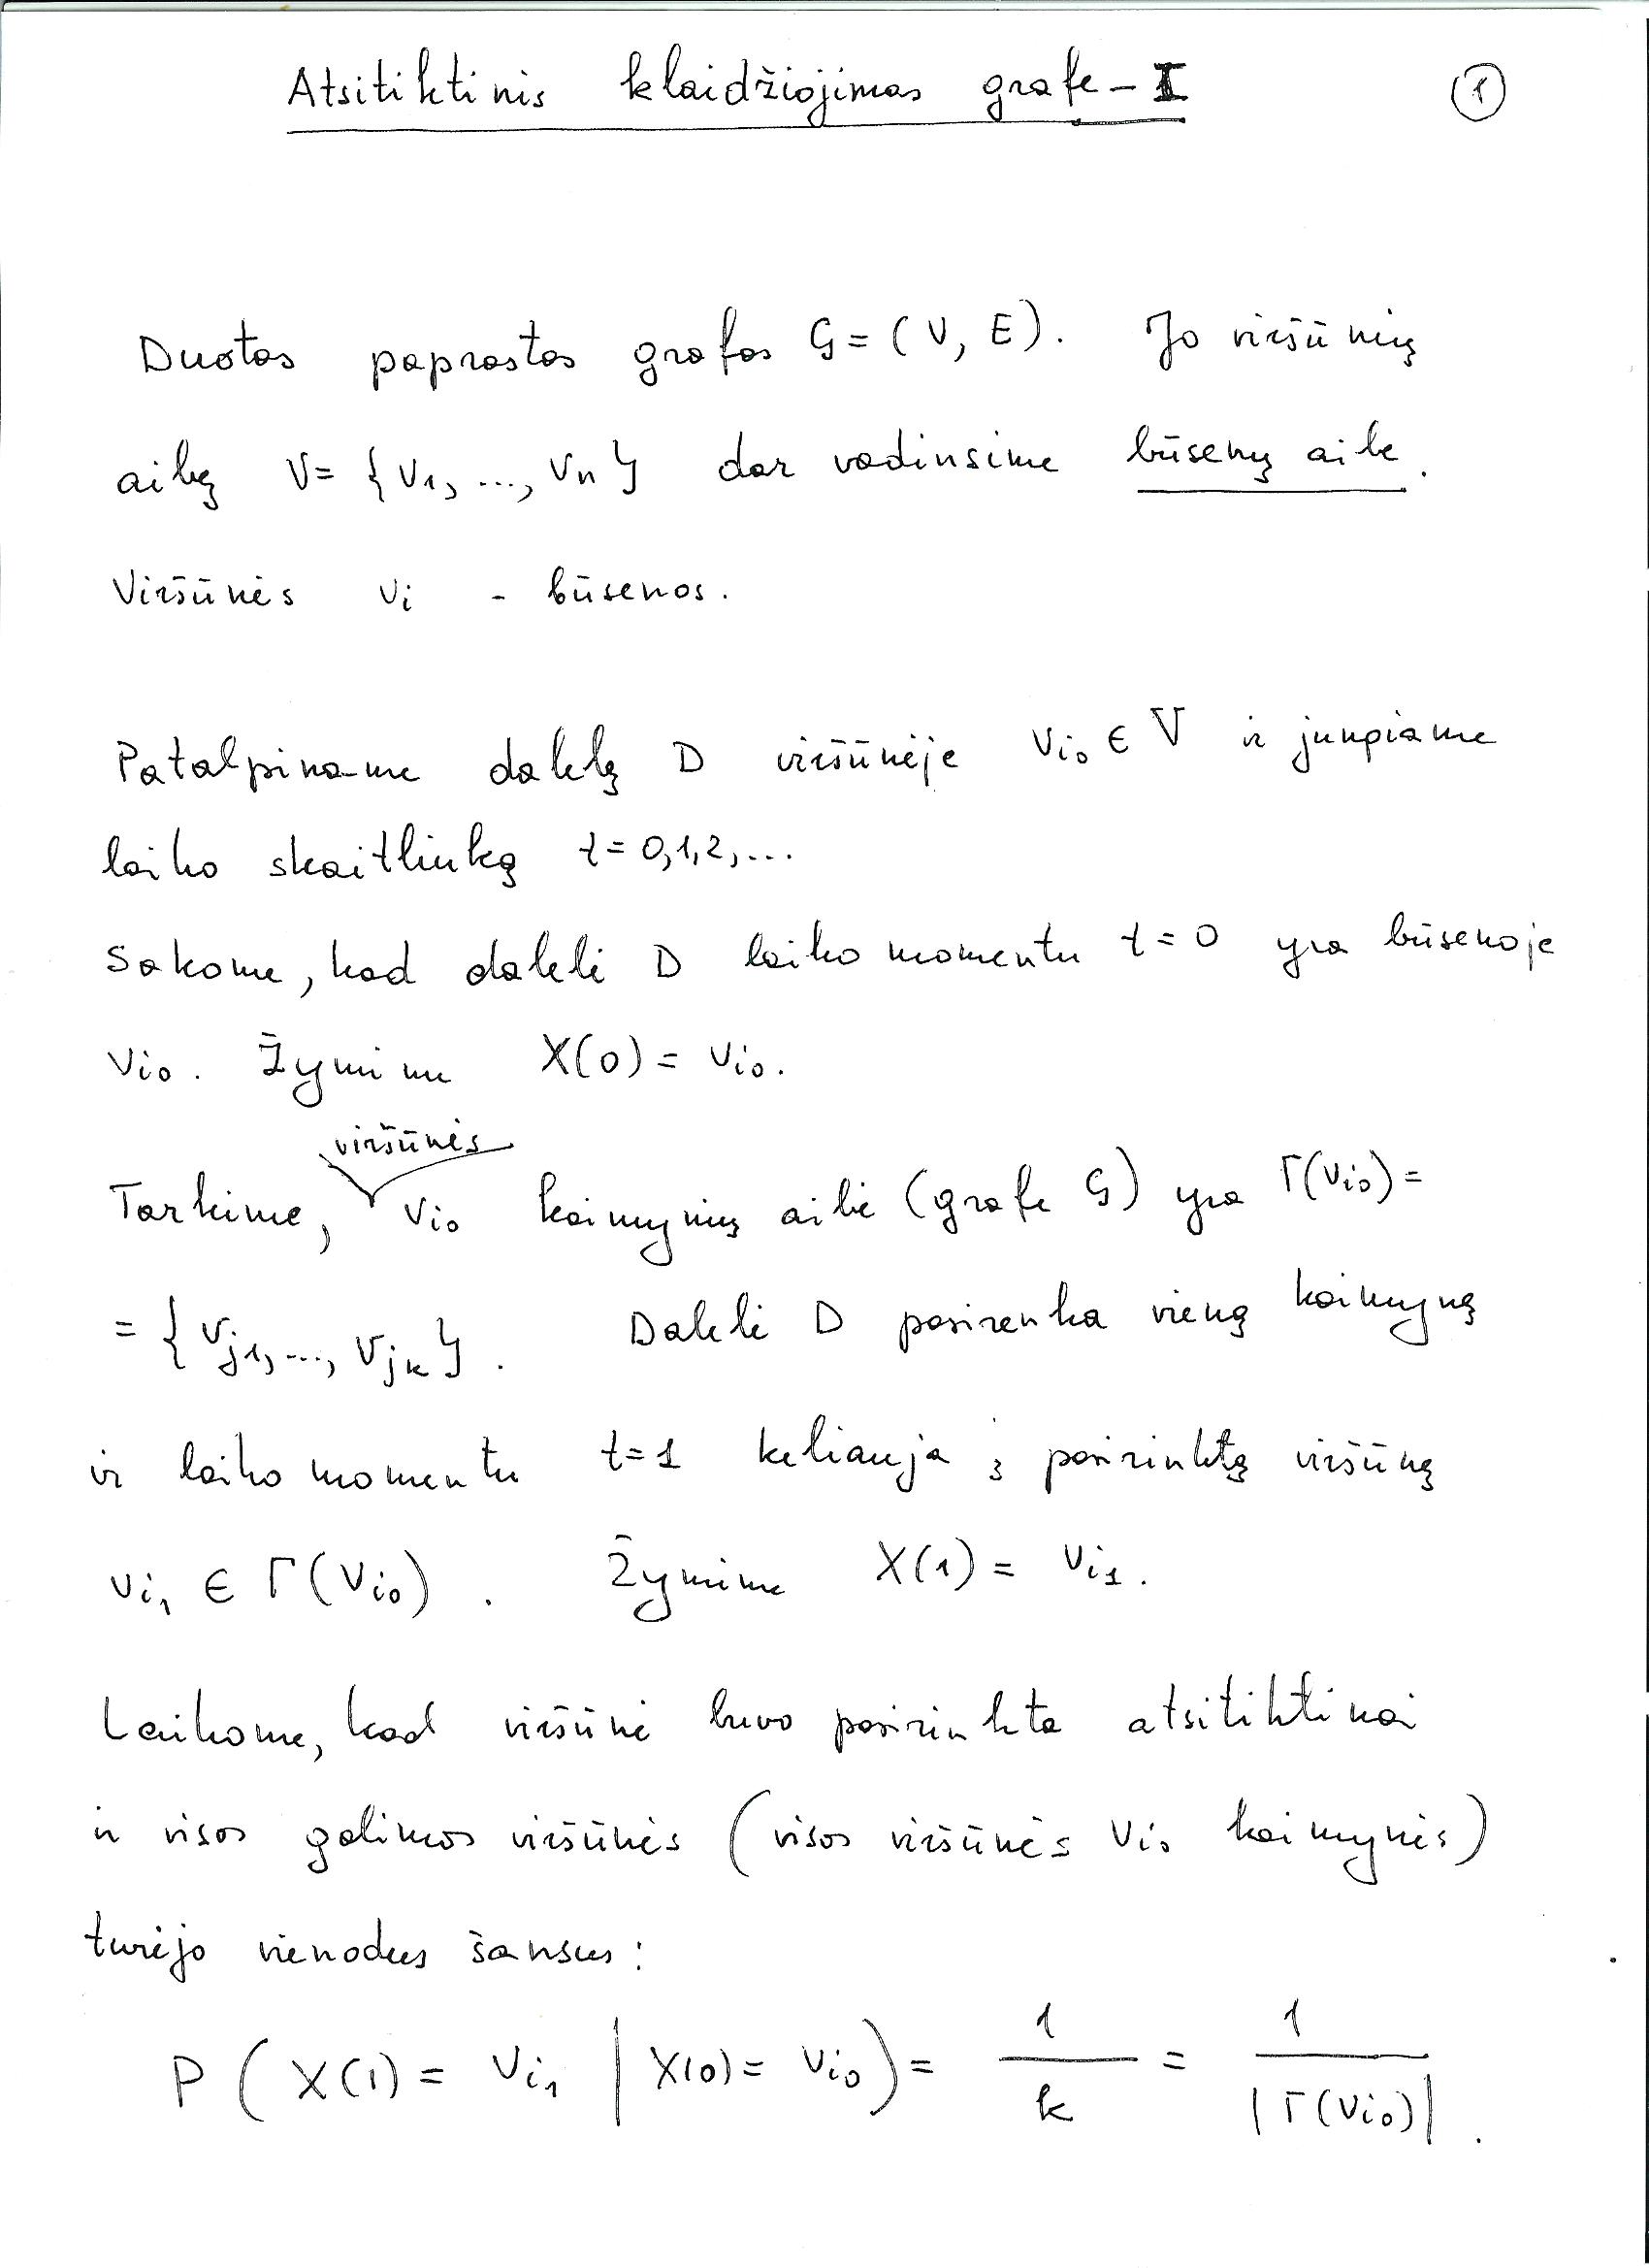 Atsitiktinis klaidžiojimas grafe - I
①
Duotas paprastas grafas G = (V, E). Jo viršūnių
aibę V = {v₁, ..., vₙ} dar vadinsime būsenų aibe.
Viršūnės vᵢ - būsenos.
Patalpiname dalelę D viršūnėje v_{i₀} ∈ V ir jungiame
laiko skaitliuką t = 0,1,2,...
Sakome, kad dalelė D laiko momentu t = 0 yra būsenoje
v_{i₀}. Žymime X(0) = v_{i₀}.
viršūnės
Tarkime, v_{i₀} kaimynių aibė (grafe G) yra Γ(v_{i₀}) =
= {v_{j₁}, ..., v_{jₖ}}. Dalelė D pasirenka vieną kaimyną
ir laiko momentu t = 1 keliauja į pasirinktą viršūnę
v_{i₁} ∈ Γ(v_{i₀}). Žymime X(1) = v_{i₁}.
Laikome, kad viršūnė buvo pasirinkta atsitiktinai
ir visos galimos viršūnės (visos viršūnės v_{i₀} kaimynės)
turėjo vienodus šansus:
P(X(1) = v_{i₁} | X(0) = v_{i₀}) = 1/k = 1/|Γ(v_{i₀})|.